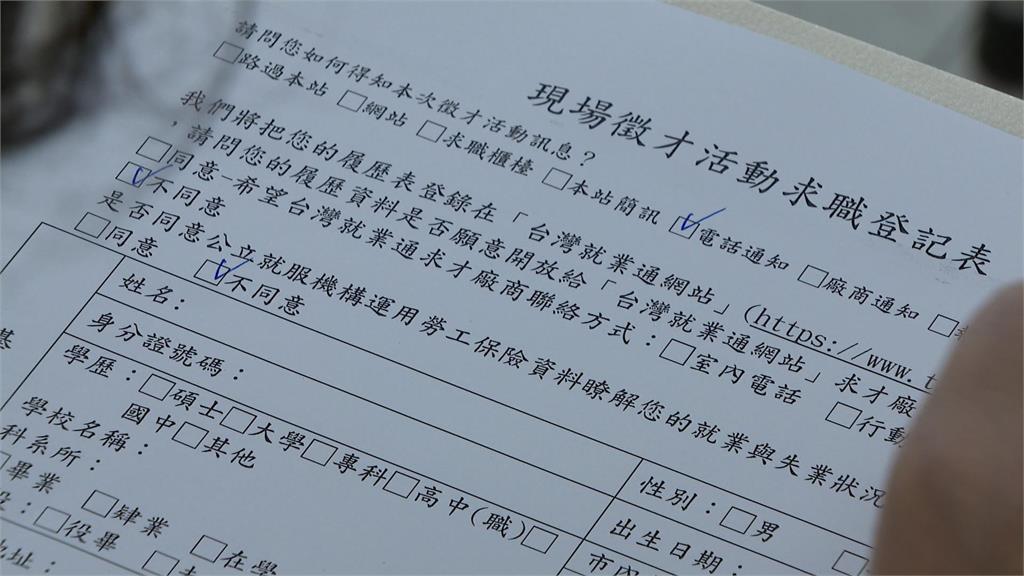 現場徵才活動求職登記表
請問您如何得知本次徵才活動訊息？
□路過本站 □網站 □求職櫃檯 □本站簡訊 ☑電話通知 □廠商通知 □
我們將把您的履歷表登錄在「台灣就業通網站」(https://www.t
，請問您的履歷資料是否願意開放給「台灣就業通網站」求才廠
□同意-希望台灣就業通求才廠商聯絡方式：□室內電話 □行動
☑不同意
是否同意公立就服機構運用勞工保險資料瞭解您的就業與失業狀況
□同意 ☑不同意
姓名：
身分證號碼： 性別：□男 □
學歷：□碩士□大學□專科□高中(職)□ 出生日期：
國中□其他 市內
學校名稱：
科系所：
畢業 □肄業 □在學
□役畢 □
地址：